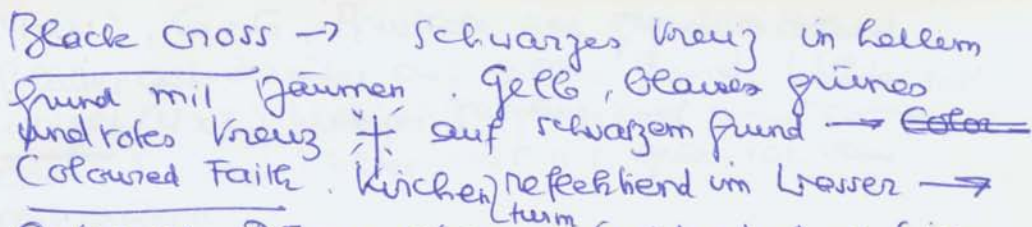 Black Cross → schwarzes Kreuz in hellem
Grund mit Bäumen. Gelb, blaues grünes
und rotes Kreuz auf schwarzem Grund → Color
Coloured Faith. Kirchenturm reflektierend im Wasser →